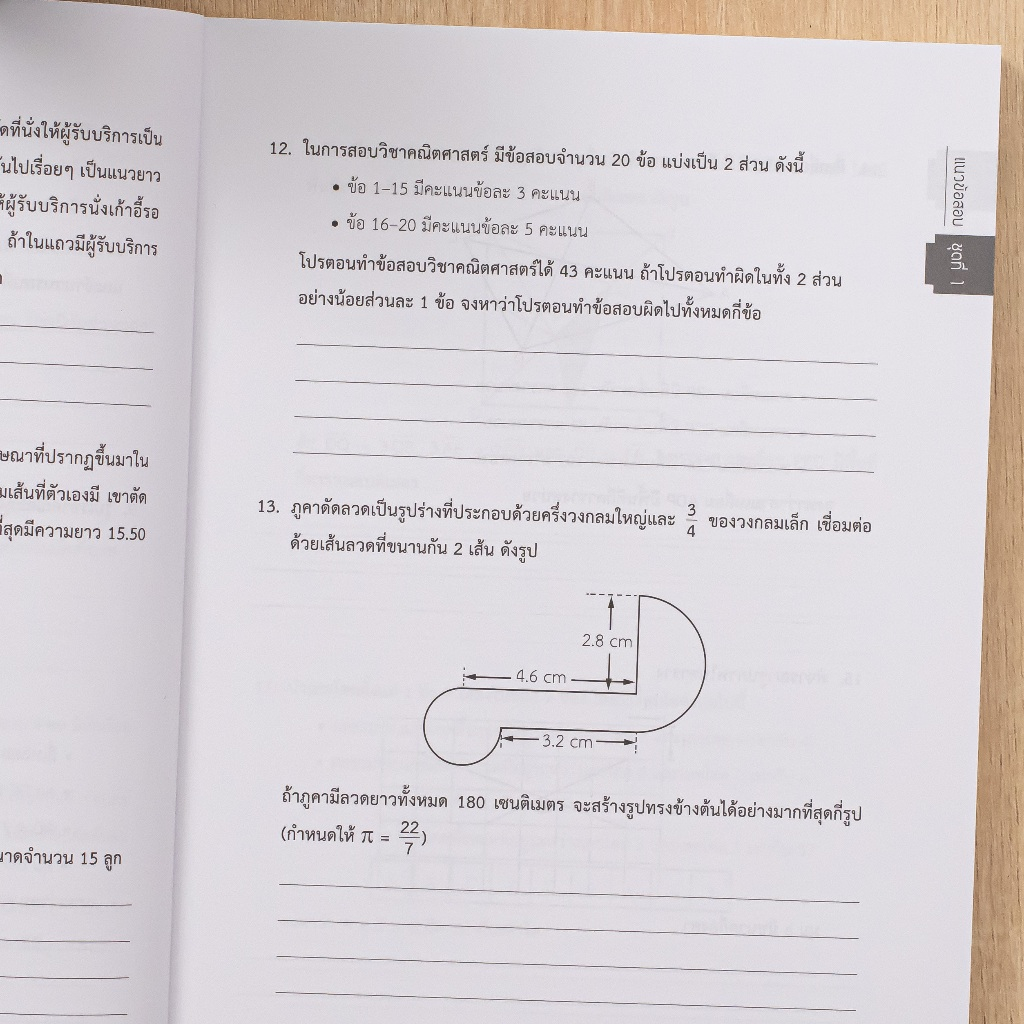 ที่นั่งให้ผู้รับบริการเป็น
ไปเรื่อยๆ เป็นแนวยาว
ผู้รับบริการนั่งเก้าอี้รอ
ถ้าในแถวมีผู้รับบริการ
ที่ปรากฏขึ้นมาใน
เส้นที่ตัวเองมี เขาตัด
ที่สุดมีความยาว 15.50
จำนวน 15 ลูก
12. ในการสอบวิชาคณิตศาสตร์ มีข้อสอบจำนวน 20 ข้อ แบ่งเป็น 2 ส่วน ดังนี้
• ข้อ 1–15 มีคะแนนข้อละ 3 คะแนน
• ข้อ 16–20 มีคะแนนข้อละ 5 คะแนน
โปรตอนทำข้อสอบวิชาคณิตศาสตร์ได้ 43 คะแนน ถ้าโปรตอนทำผิดในทั้ง 2 ส่วน
อย่างน้อยส่วนละ 1 ข้อ จงหาว่าโปรตอนทำข้อสอบผิดไปทั้งหมดกี่ข้อ
13. ภูคาดัดลวดเป็นรูปร่างที่ประกอบด้วยครึ่งวงกลมใหญ่และ 3/4 ของวงกลมเล็ก เชื่อมต่อ
ด้วยเส้นลวดที่ขนานกัน 2 เส้น ดังรูป
2.8 cm
4.6 cm
3.2 cm
ถ้าภูคามีลวดยาวทั้งหมด 180 เซนติเมตร จะสร้างรูปทรงข้างต้นได้อย่างมากที่สุดกี่รูป
(กำหนดให้ π = 22/7)
แนวข้อสอบ
ชุดที่ 1